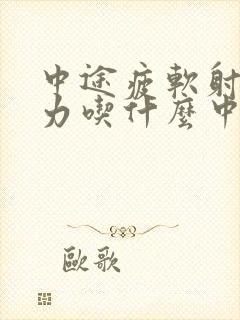 中途疲軟射
力喫什麼中
歐歌